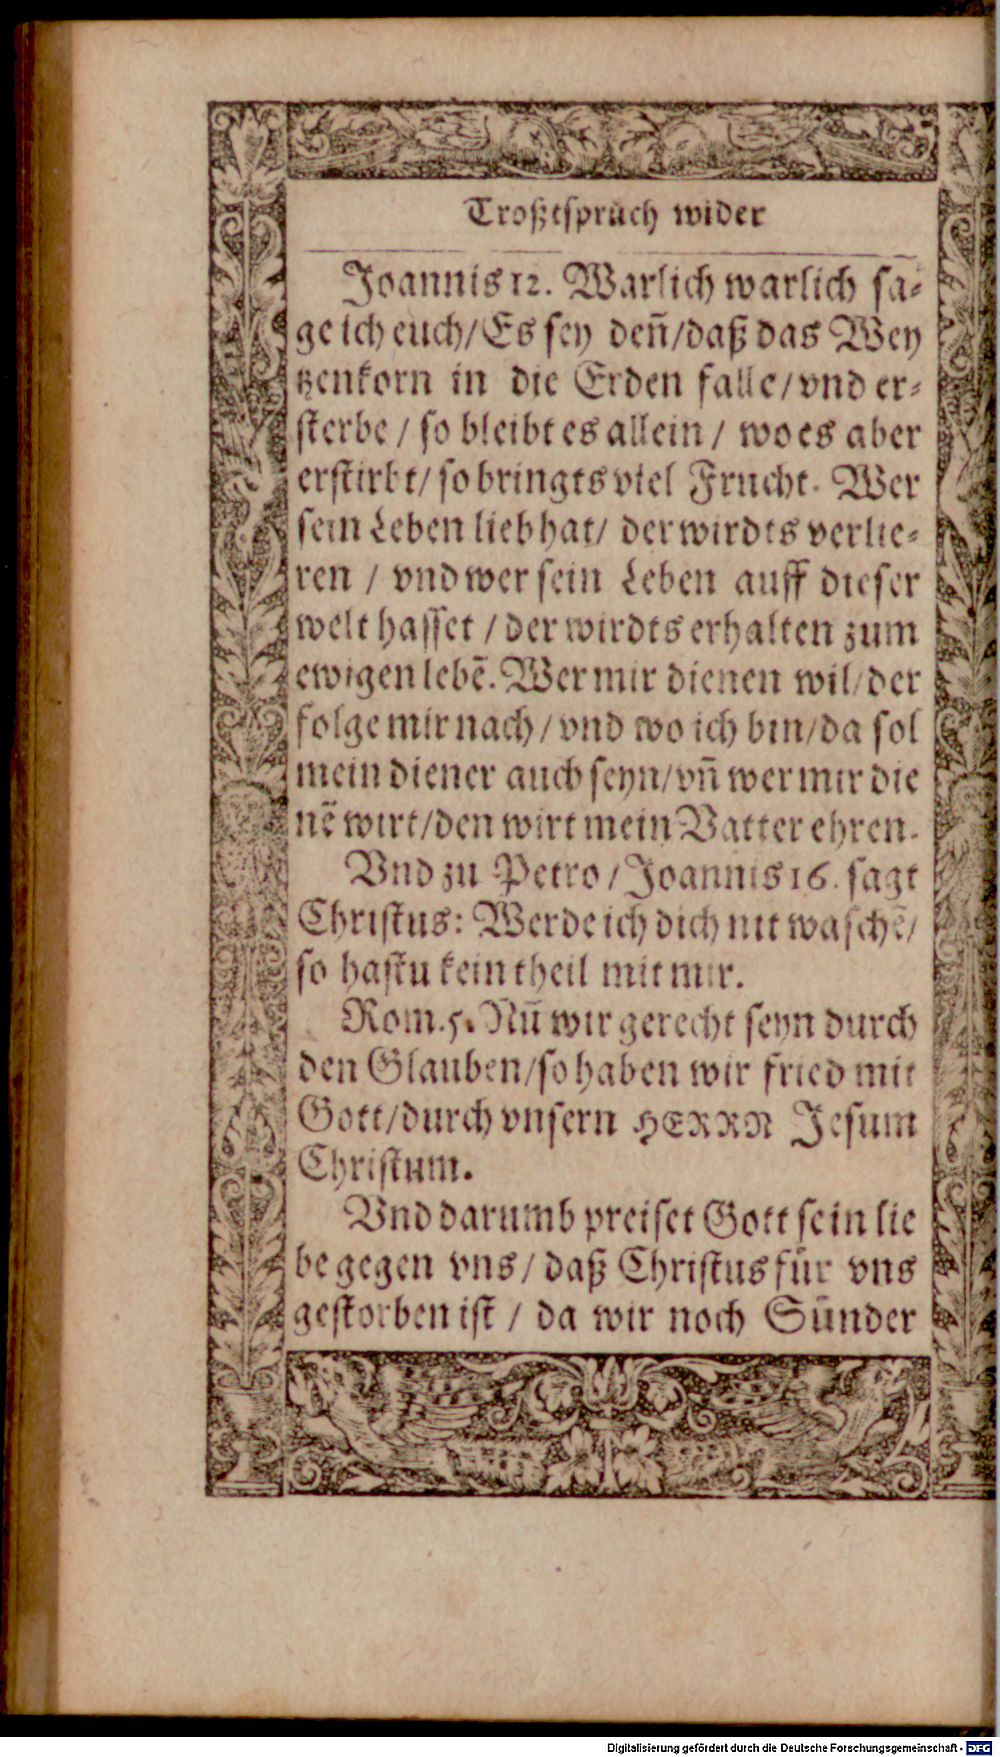 Troßtsprüch wider
Joannis 12. Warlich warlich sa⸗
ge ich euch/Es sey deñ/daß das Wey
tzenkorn in die Erden falle/vnd er⸗
sterbe / so bleibt es allein / wo es aber
erstirbt/ so bringts viel Frucht. Wer
sein Leben lieb hat/ der wirdts verlie⸗
ren / vnd wer sein Leben auff dieser
welt hasset / der wirdts erhalten zum
ewigen lebẽ. Wer mir dienen wil/der
folge mir nach/ vnd wo ich bin/da sol
mein diener auch seyn/vñ wer mir die
nẽ wirt/den wirt mein Vatter ehren.
Vnd zu Petro / Joannis 16. sagt
Christus: Werde ich dich nit waschẽ/
so hastu kein theil mit mir.
Rom. 5. Nũ wir gerecht seyn durch
den Glauben/so haben wir fried mit
Gott/durch vnsern HERRN Jesum
Christum.
Vnd darumb preiset Gott sein lie
be gegen vns/ daß Christus für vns
gestorben ist / da wir noch Sünder
Digitalisierung gefördert durch die Deutsche Forschungsgemeinschaft - DFG